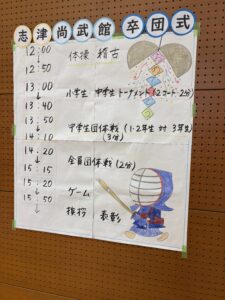 志津尚武館 卒団式
12:00 体操 稽古
↓
12:50
13:00 小学生 中学生 トーナメント(2コート・2分)
↓
13:40
13:50 中学生団体戦(1・2年生 対 3年生)
↓ (3分)
14:10
14:20 全員団体戦(2分)
↓
15:15
15:20 ゲーム
↓
15:50 挨拶 表彰